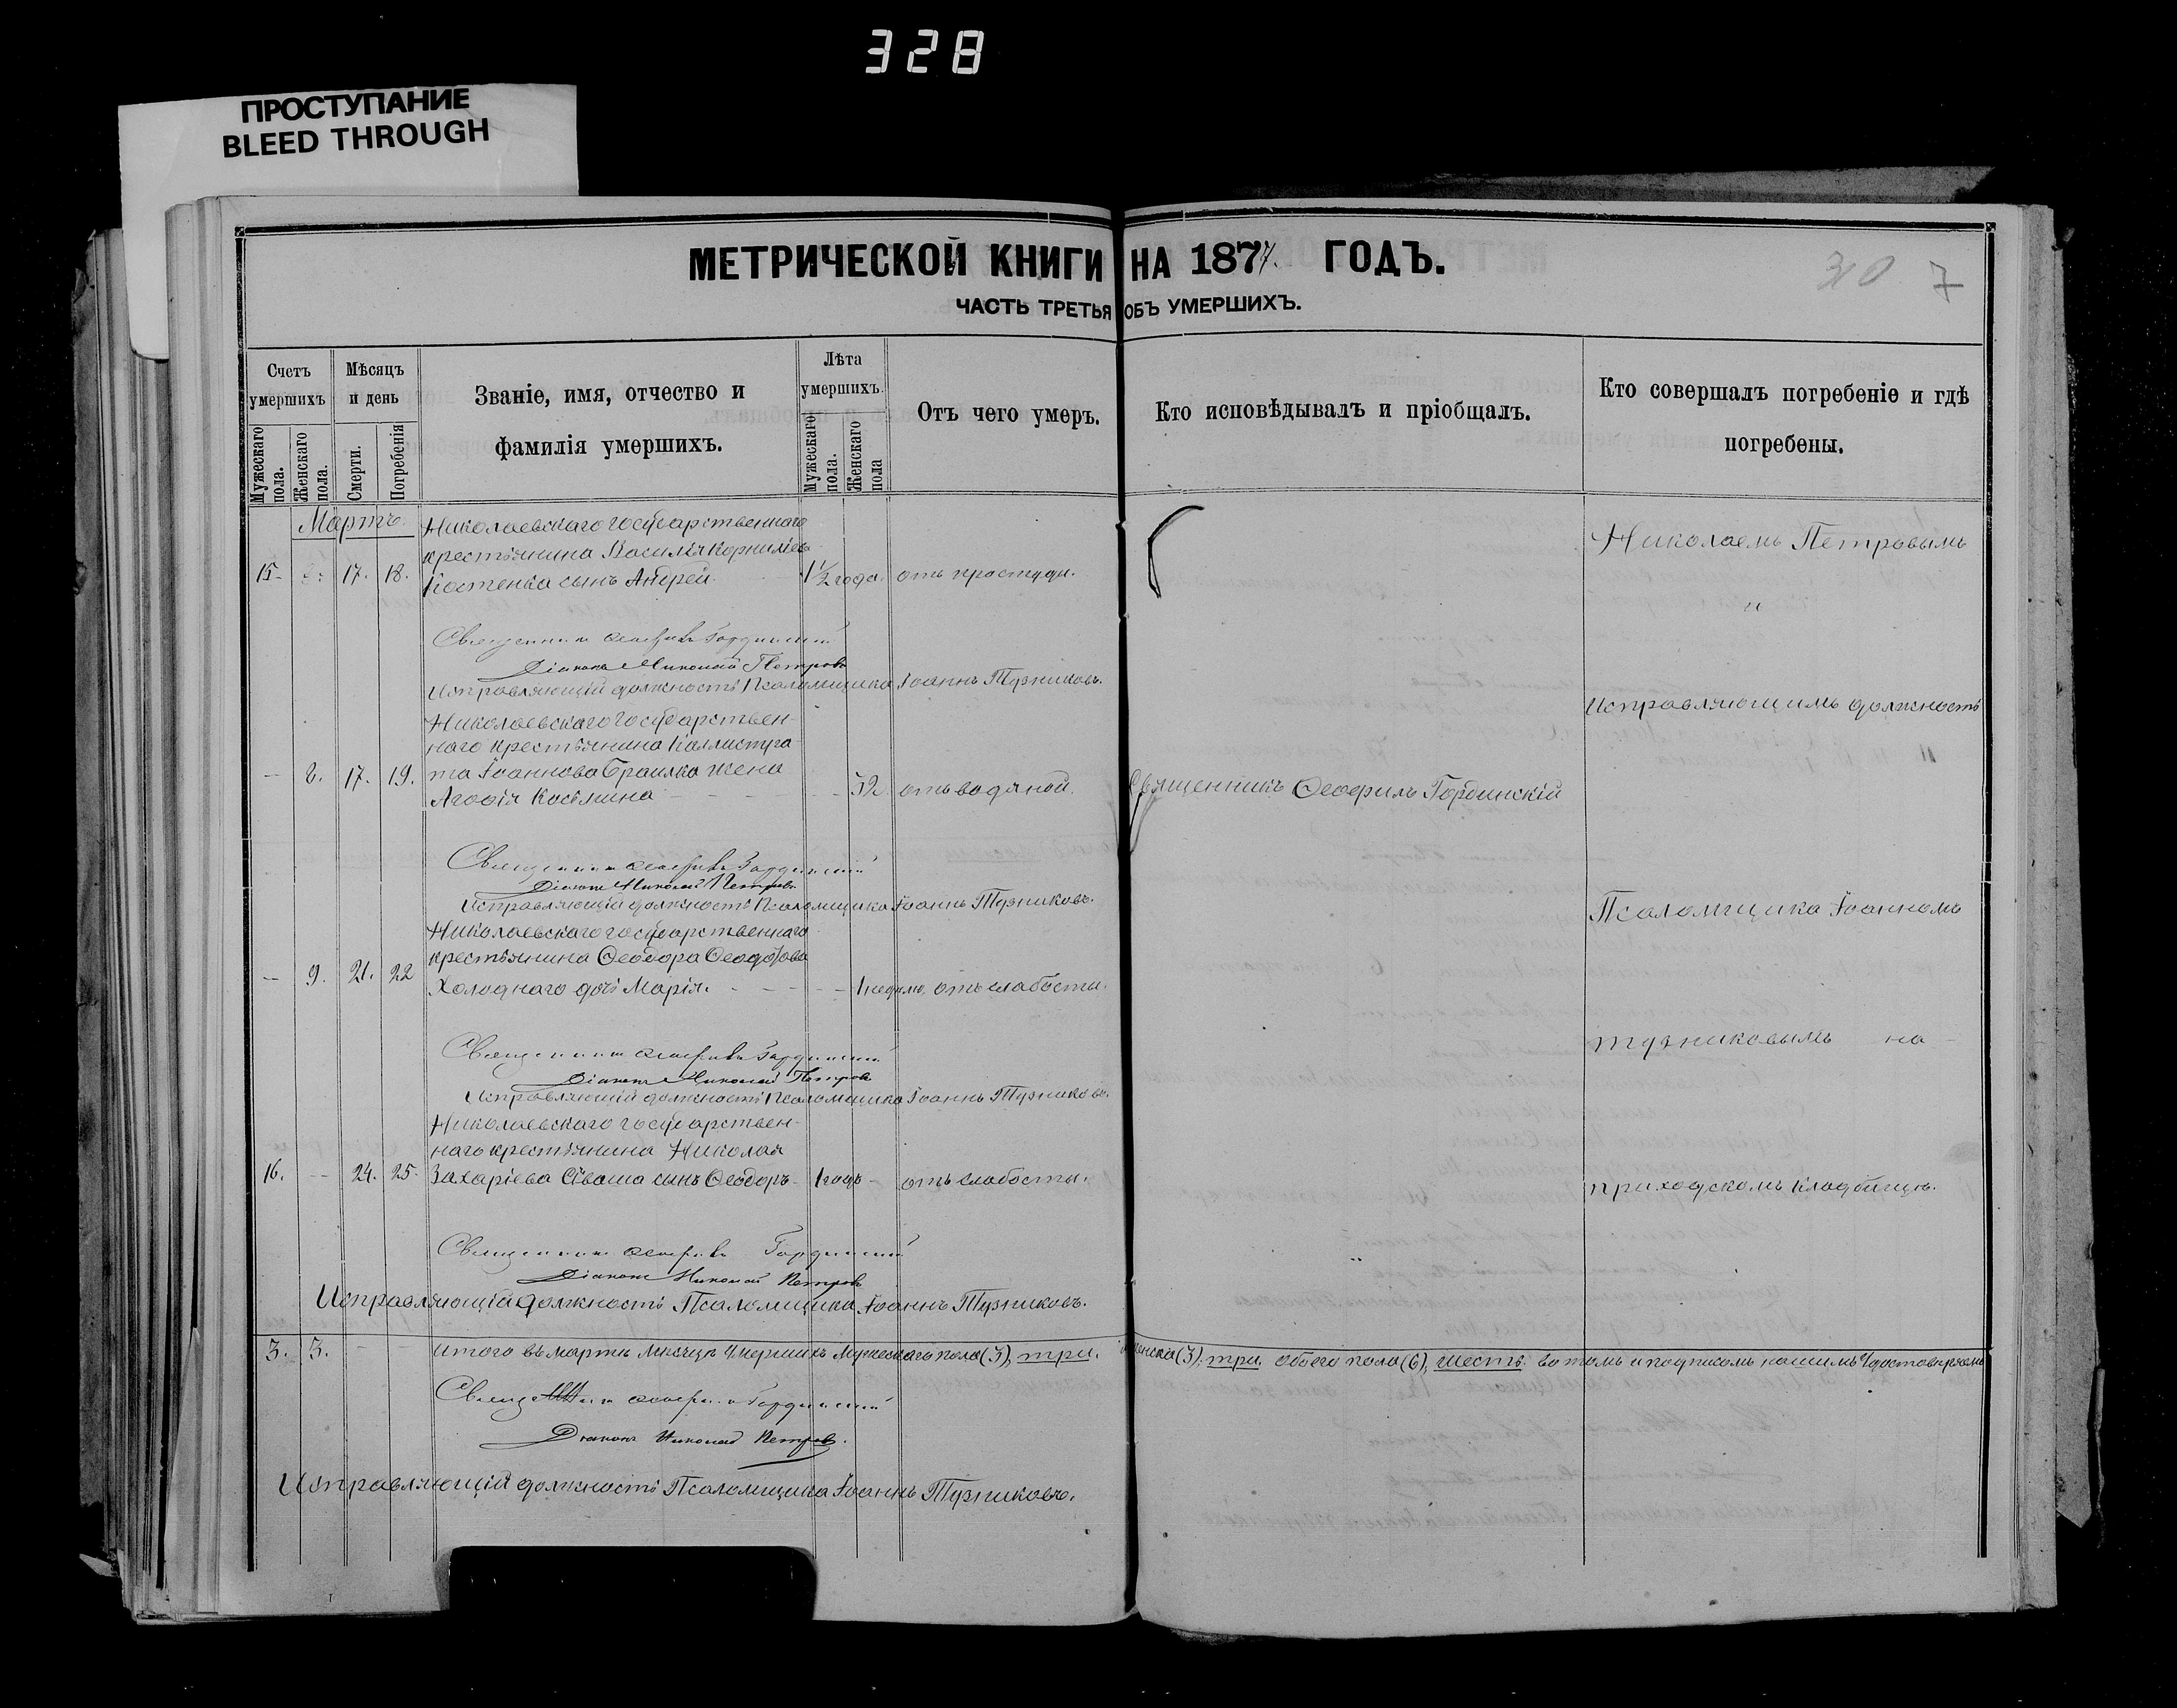 328
ПРОСТУПАНИЕ
BLEED THROUGH
МЕТРИЧЕСКОЙ КНИГИ НА 1877. ГОДЪ.
30 7
ЧАСТЬ ТРЕТЬЯ ОБЪ УМЕРШИХЪ.
Счетъ умершихъ
Мѣсяцъ и день
Званіе, имя, отчество и фамилія умершихъ.
Лѣта умершихъ.
Отъ чего умеръ.
Кто исповѣдывалъ и пріобщалъ.
Кто совершалъ погребеніе и гдѣ погребены.
Мужескаго пола.
Женскаго пола.
Смерти.
Погребенія
Мужескаго пола.
Женскаго пола
Мартъ.
Николаевскаго государственнаго
крестьянина Василія Корниліева
15 - 17. 18. Костенка сынъ Андрей. 1 1/2 года. отъ простуды.
Николаемъ Петровымъ
"
Священникъ Ѳеофилъ Гордински
Діаконъ Николай Петровъ
Исправляющій должность Псаломщика Іоаннъ Тузниковъ.
Исправляющимъ должность
Николаевскаго государствен-
наго крестьянина Каллистра-
— 8. 17. 19. та Іоаннова Браилка жена
Агафія Косьмина — 52 отъ водяной.
Священникъ Ѳеофилъ Гординскій
Священникъ Ѳеофилъ Гординскій
Діаконъ Николай Петровъ
Исправляющій должность Псаломщика Іоаннъ Тузниковъ.
Псаломщика Іоанномъ
Николаевскаго государственнаго
крестьянина Ѳеодора Ѳеодотова
— 9. 21. 22 Холоднаго дочь Марія. — 1 недѣлю отъ слабости.
Тузниковымъ на
Священникъ Ѳеофилъ Гординскій
Діаконъ Николай Петровъ
Исправляющій должность Псаломщика Іоаннъ Тузниковъ.
Николаевскаго государствен-
наго крестьянина Николая
16. — 24. 25. Захаріева Сиваша сынъ Ѳеодоръ - 1 годъ - отъ слабости.
приходскомъ кладбищѣ.
Священникъ Ѳеофилъ Гординскій
Діаконъ Николай Петровъ
Исправляющій должность Псаломщика Іоаннъ Тузниковъ.
3. 3. — — Итого въ мартѣ мѣсяцѣ умершихъ мужескаго пола (3), три. женска (3), три. обоего пола (6), шесть. въ томъ и подписомъ нашимъ удостовѣряемъ
Священникъ Ѳеофилъ Гординскій
Діаконъ Николай Петровъ.
Исправляющій должность Псаломщика Іоаннъ Тузниковъ.